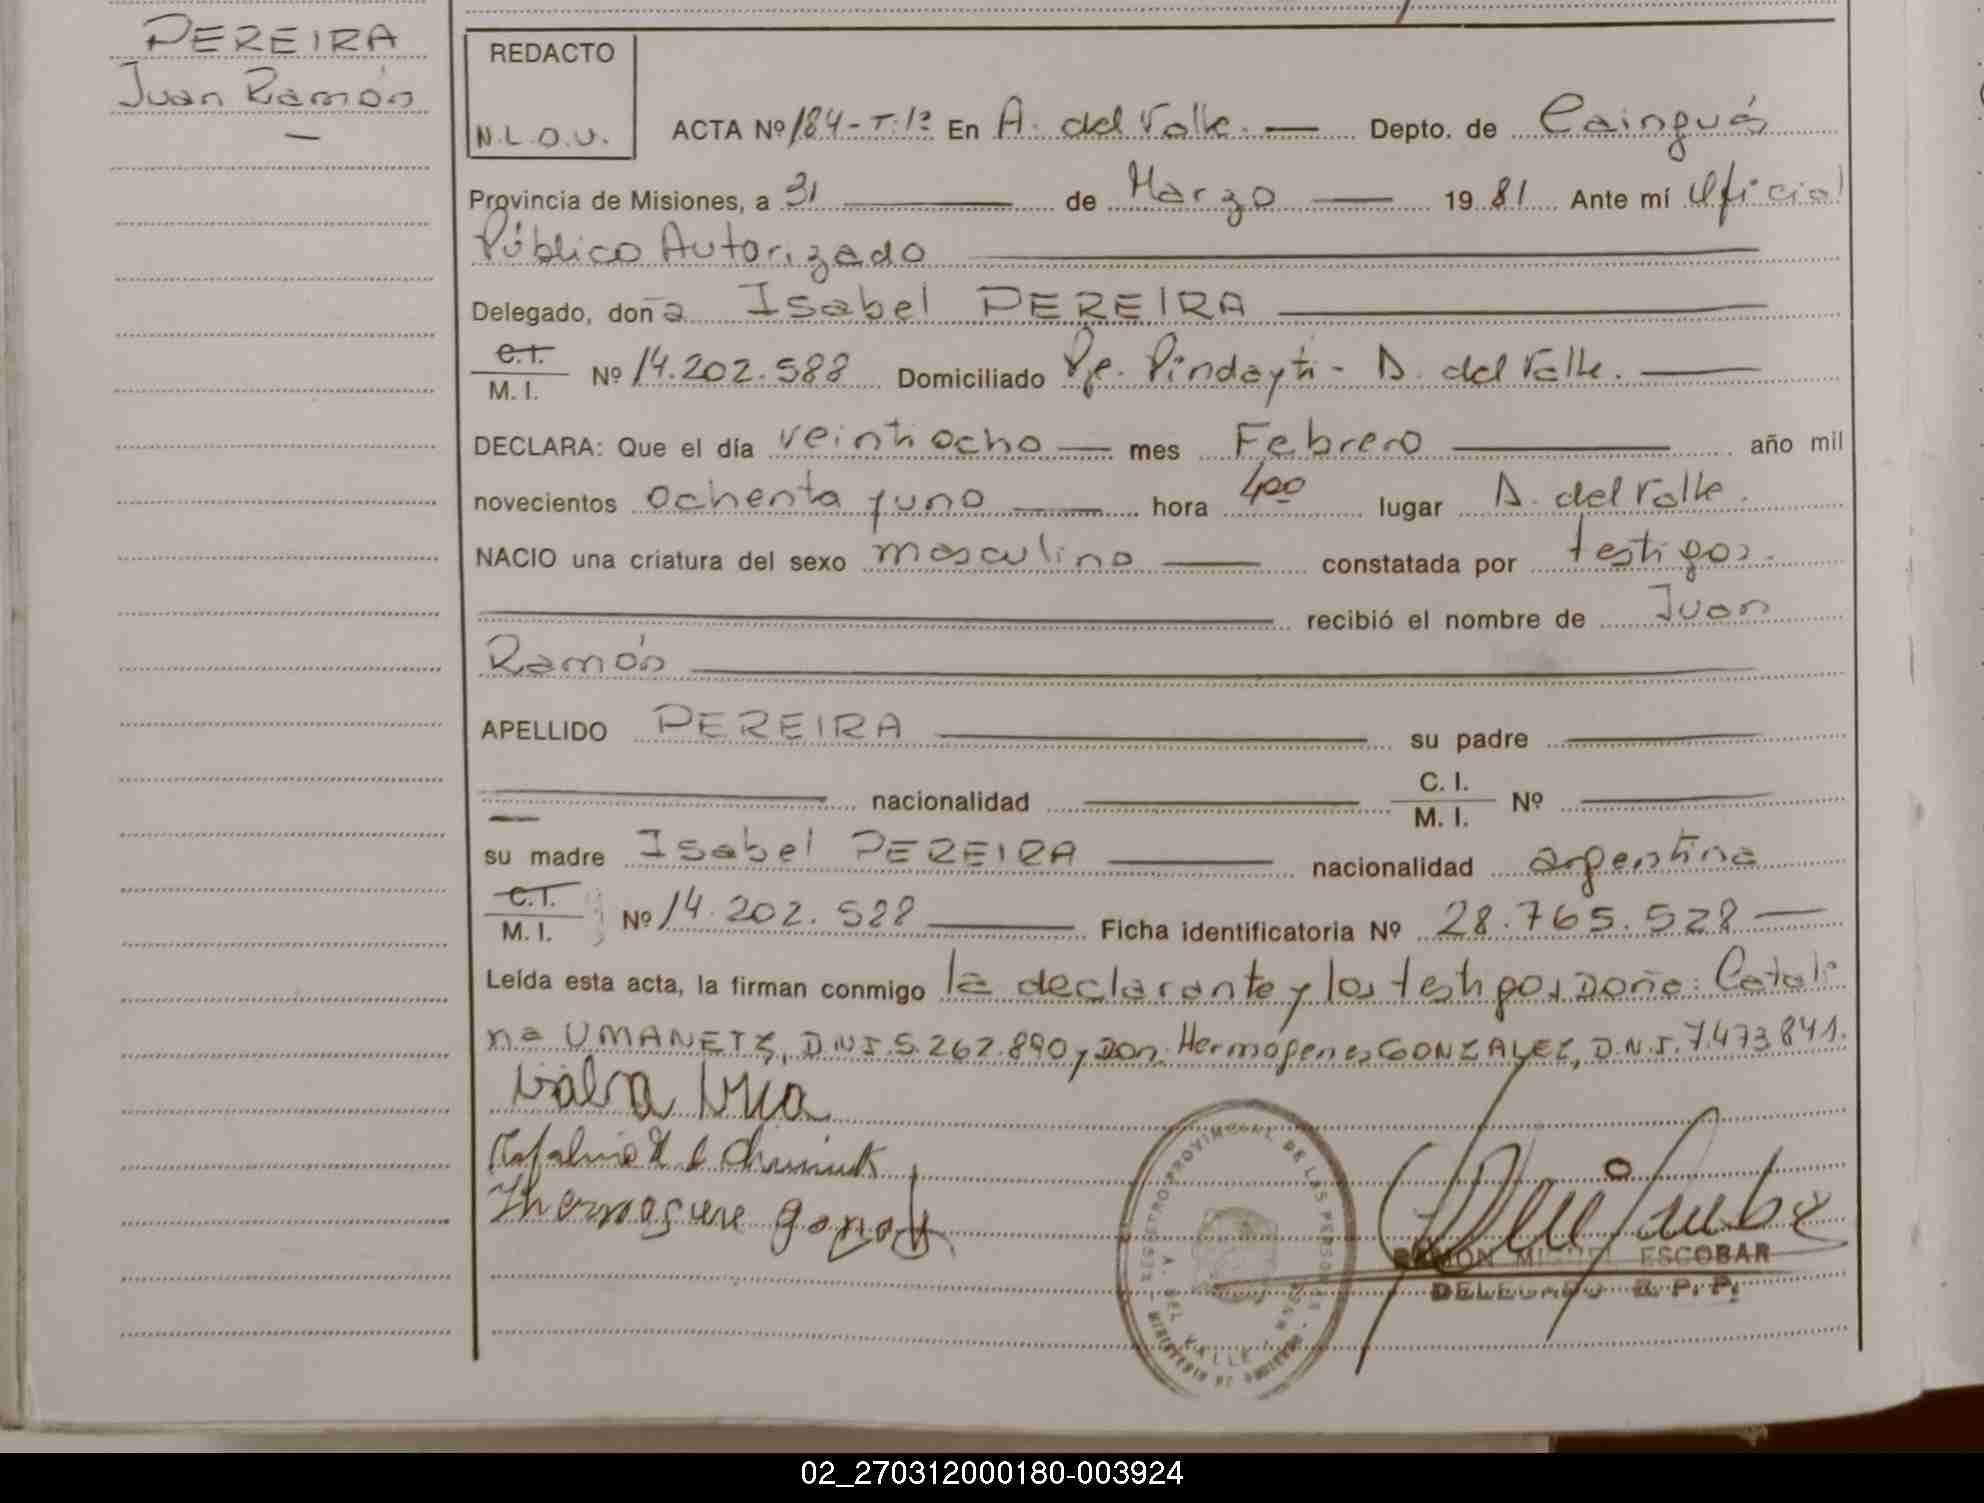 PEREIRA
Juan Ramón
REDACTO
N.L.O.U.
ACTA Nº 184-T:1º En A. del Valle. Depto. de Cainguás
Provincia de Misiones, a 31 de Marzo 1981 Ante mí Oficial
Público Autorizado
Delegado, doña Isabel PEREIRA
C.I.
M. I. Nº 14.202.588 Domiciliado Pje. Pindayti - A. del Valle.
DECLARA: Que el día veintiocho mes Febrero año mil
novecientos ochenta y uno hora 400 lugar A. del Valle.
NACIO una criatura del sexo masculino constatada por testigos.
recibió el nombre de Juan
Ramón
APELLIDO PEREIRA su padre
nacionalidad C. I.
M. I. Nº
su madre Isabel PEREIRA nacionalidad argentina
C.I.
M. I. Nº 14.202.588 Ficha identificatoria Nº 28.765.528
Leída esta acta, la firman conmigo la declarante y los testigos, Doña: Catali
na UMANETZ, D.N.I. 5.262.890 y Don. Hermogenes GONZALEZ, D.N.I. 7.473.841.
REGISTRO PROVINCIAL DE LAS PERSONAS
A. DEL VALLE
MINISTERIO DE GOBIERNO
RAMON MIGUEL ESCOBAR
DELEGADO R. P. P.
02_270312000180-003924